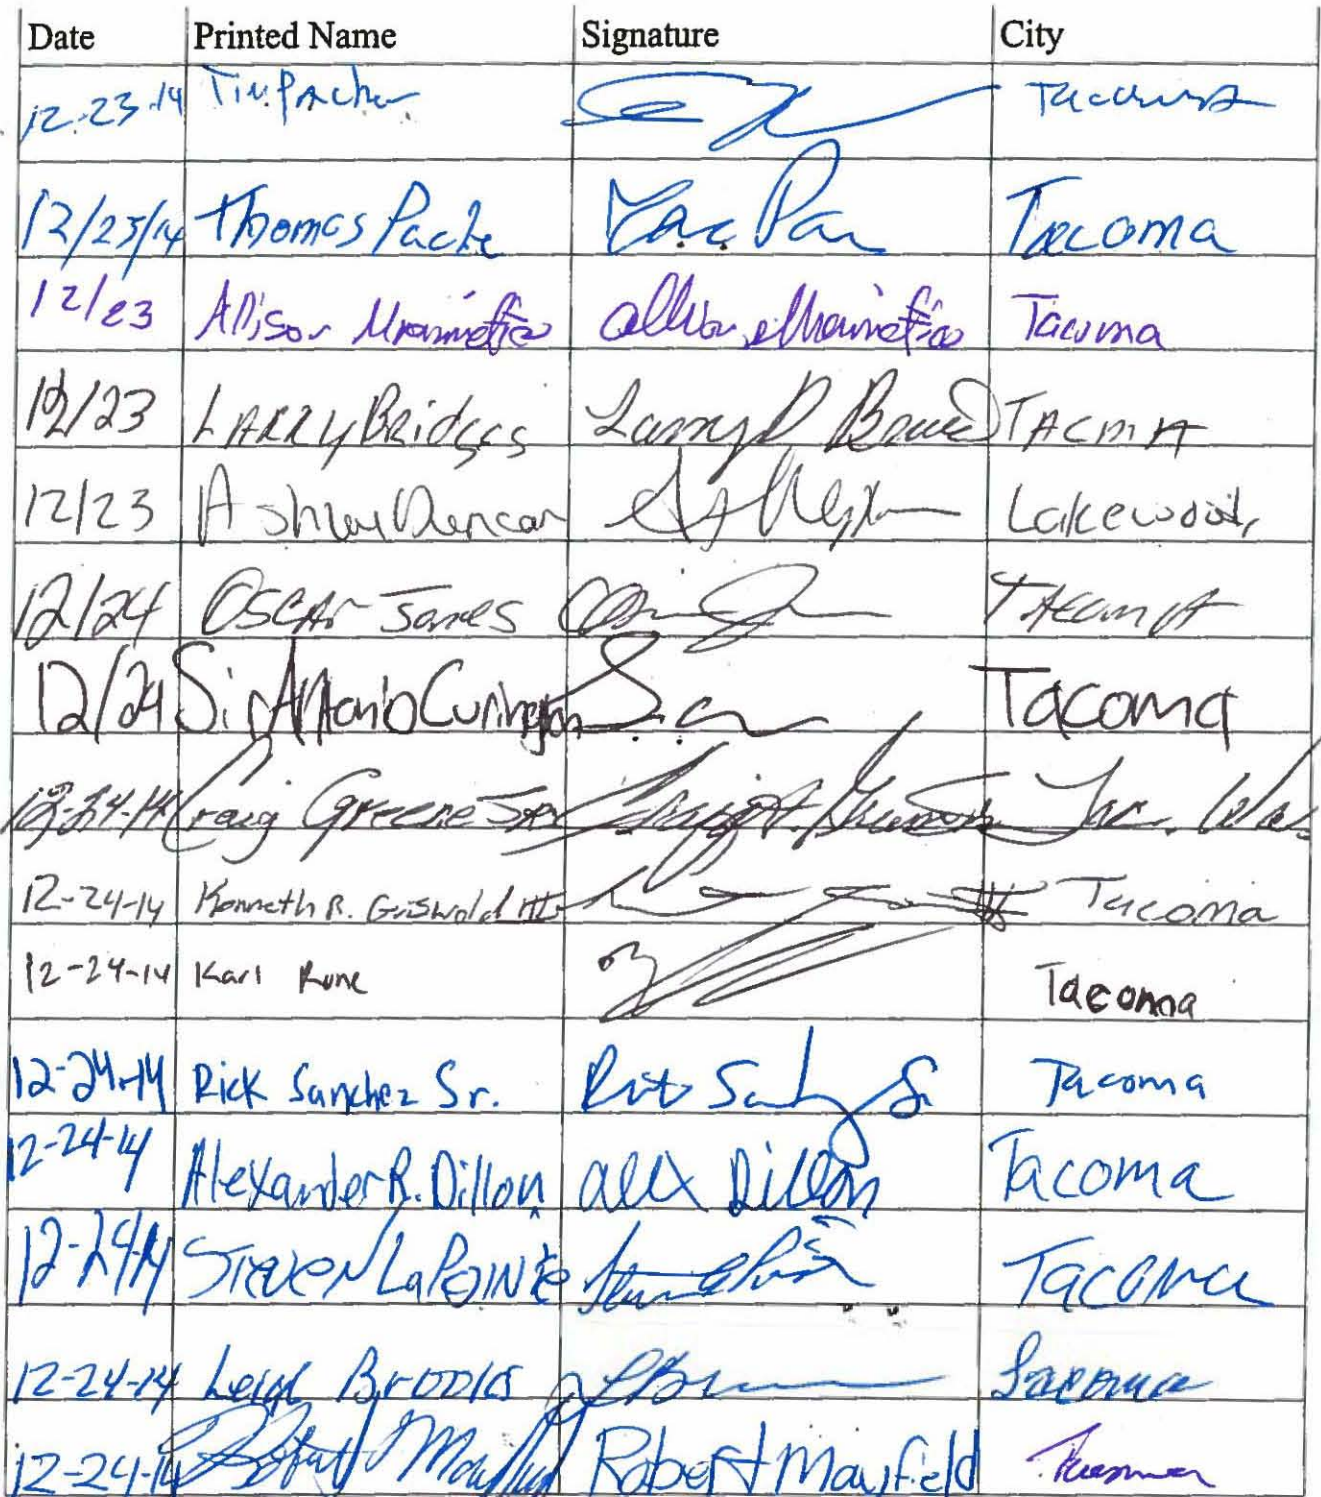 Date Printed Name Signature City
12-23-14 Tim Tacoma
12/23/14 Thomas Tacoma
12/23 Allison Tacoma
12/23 LARRY Bridges Larry D TACMA
12/23 Ashley Duncan Lakewood,
12/24 OSCAr James TACOmA
12/24 Sir Antonio Curington Tacoma
12-24-14 Craig Greene Tac. Wa.
12-24-14 Kenneth R. Griswold III Tacoma
12-24-14 Karl Rune Tacoma
12-24-14 Rick Sanchez Sr. Tacoma
12-24-14 Alexander R. Dillon Alex Dillon Tacoma
12-24-14 STEVEN LaPOINTE TACOMa
12-24-14 Leigh Brooks Tacoma
12-24-14 Robert Mayfield Robert Mayfield